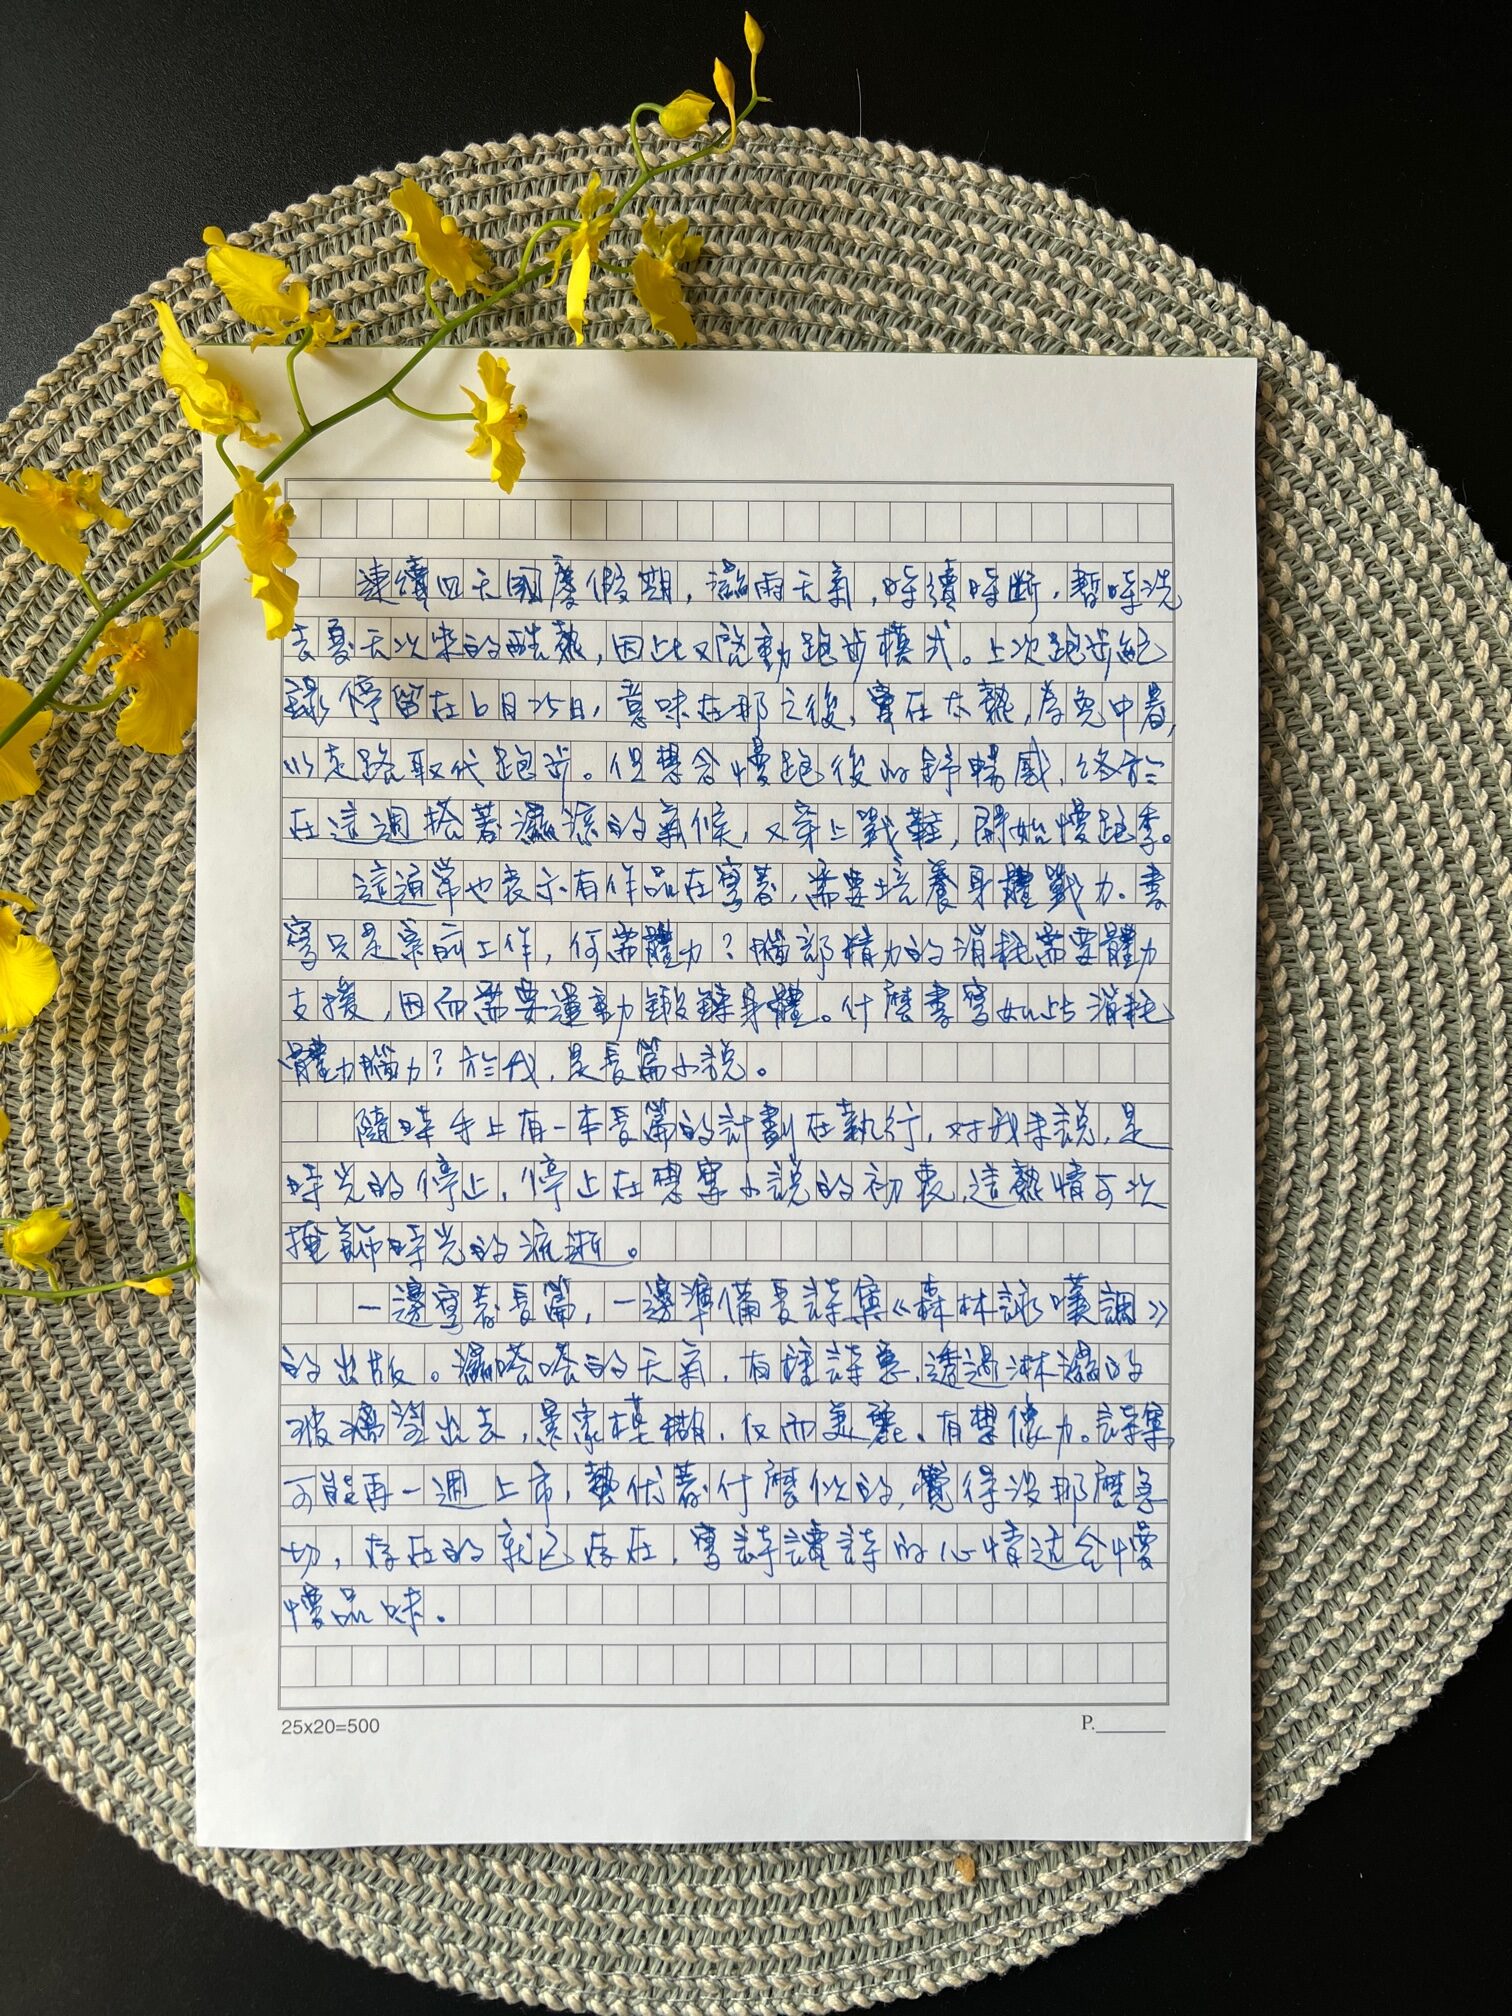 連續四天國慶假期，濕雨天氣，時續時斷，暫時洗
去夏天以來的酷熱，因此又啟動跑步模式。上次跑步紀
錄停留在6月25日，意味在那之後，實在太熱，為免中暑，
以走路取代跑步。但想念慢跑後的舒暢感，終於
在這週搭著濕涼的氣候，又穿上戰鞋，開始慢跑季。
這通常也表示有作品在寫著，需要培養身體戰力。書
寫只是案前工作，何需體力？腦部精力的消耗需要體力
支援，因而需要運動鍛鍊身體。什麼書寫如此消耗
體力腦力？於我，是長篇小說。
隨時手上有一本長篇的計劃在執行，對我來說，是
時光的停止，停止在想寫小說的初衷，這熱情可以
掩飾時光的流逝。
一邊寫著長篇，一邊準備長詩集《森林詠嘆調》
的出版。濕嗒嗒的天氣，有種詩意，透過淋濕的
玻璃望出去，景象模糊，反而美麗、有想像力。詩集
可能再一週上市，蟄伏著什麼似的，覺得沒那麼急
切，存在的就已存在，寫詩讀詩的心情這會慢
慢品味。
25x20=500
P.